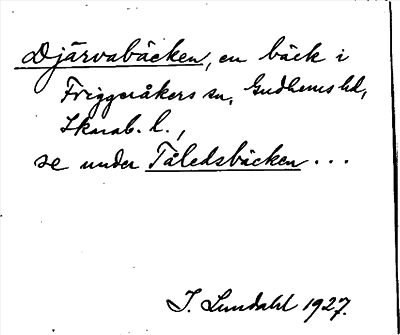 Djärvabäcken, en bäck i
Friggeråkers sn, Gudhems hd,
Skarab. l.,
se under Tåledsbäcken ...
I. Lundahl 1927.